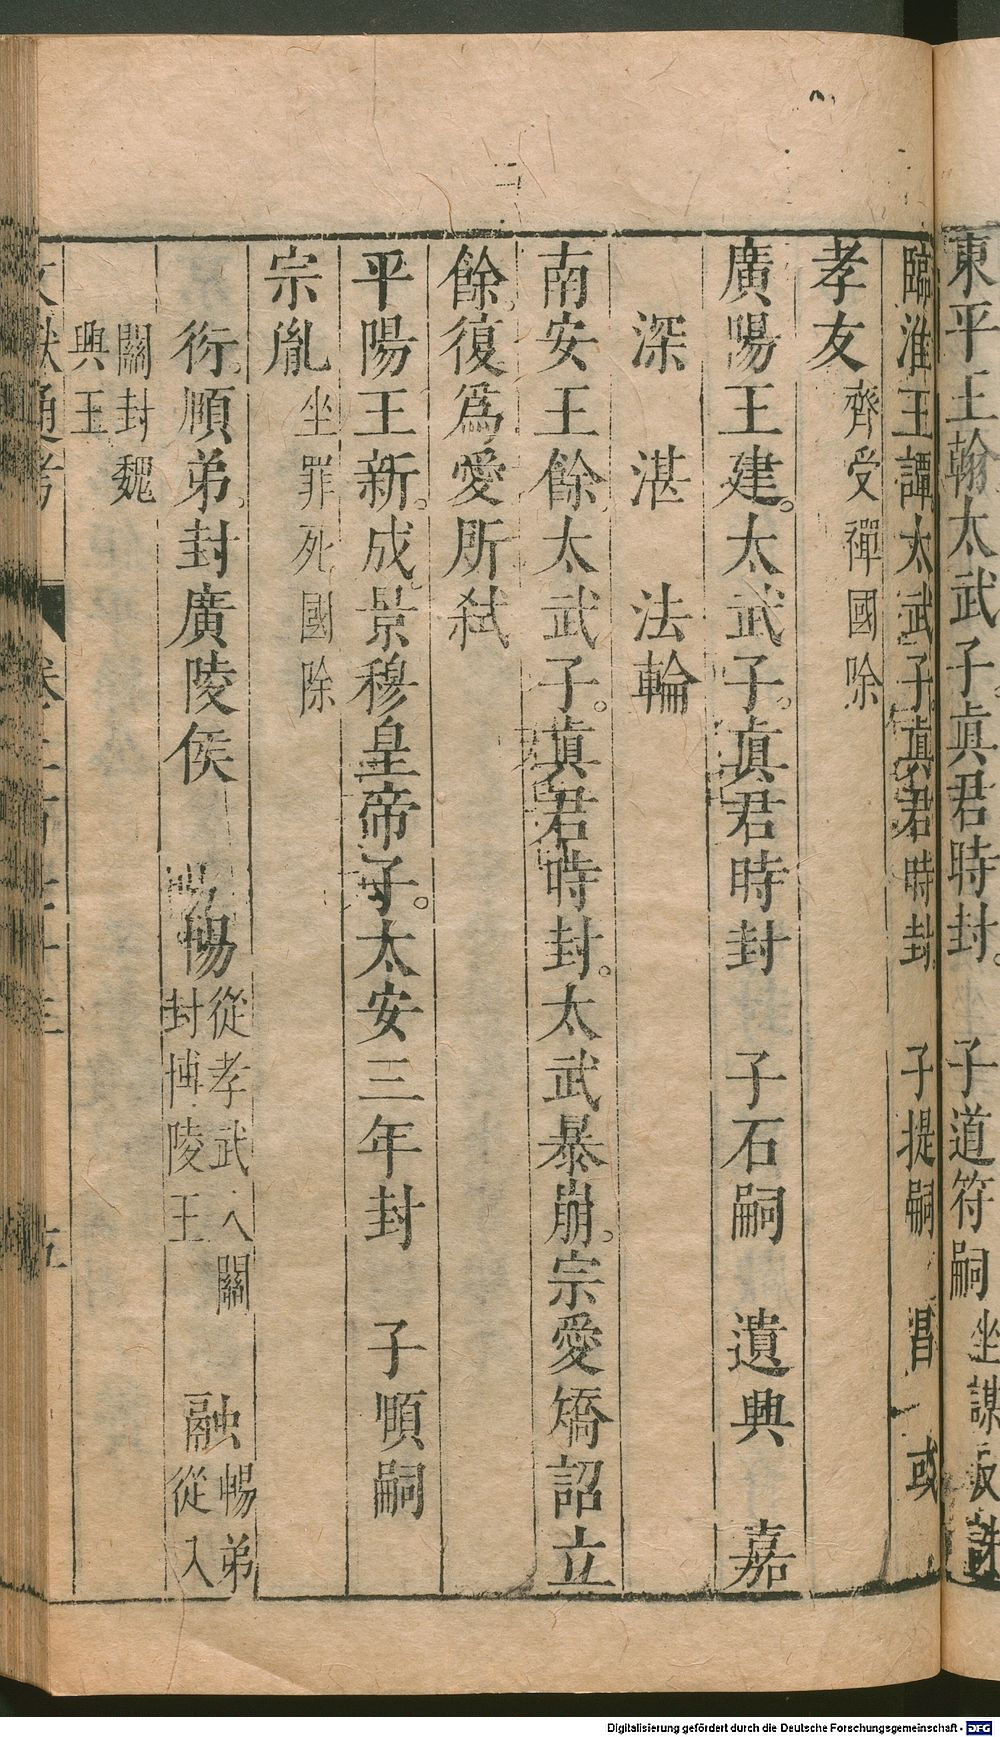 東平王翰太武子。真君時封。 子道符嗣 坐謀反誅
臨淮王譚太武子。真君時封 子提嗣 昌 或
孝友 齊受禪國除
廣陽王建。太武子。真君時封 子石嗣 遺興 嘉
深 湛 法輪
南安王餘太武子。真君時封。太武暴崩。宗愛矯詔立
餘。復為愛所弒
平陽王新。成景穆皇帝子。太安三年封 子順嗣
宗胤 坐罪死國除
衍。順弟。封廣陵侯 暢 從孝武入關封博陵王 融 暢弟從入
關封魏興王
文獻通考 卷 五
Digitalisierung gefördert durch die Deutsche Forschungsgemeinschaft - DFG